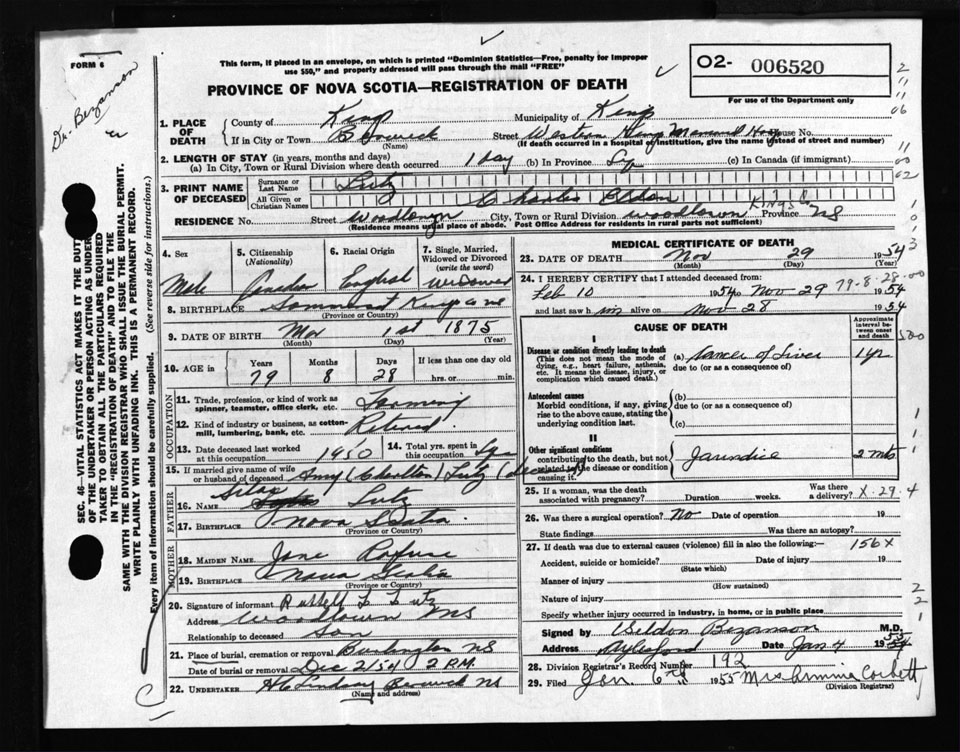 FORM 6
This form, if placed in an envelope, on which is printed "Dominion Statistics—Free, penalty for improper
use $50," and properly addressed will pass through the mail "FREE"
O2- 006520
For use of the Department only
PROVINCE OF NOVA SCOTIA—REGISTRATION OF DEATH
Dr. Bezanson
SEC. 46—VITAL STATISTICS ACT MAKES IT THE DUTY
OF THE UNDERTAKER OR PERSON ACTING AS UNDER-
TAKER TO OBTAIN ALL THE PARTICULARS REQUIRED
IN THE "REGISTRATION OF DEATH" AND TO FILE THE
SAME WITH THE DIVISION REGISTRAR WHO SHALL ISSUE THE BURIAL PERMIT.
WRITE PLAINLY WITH UNFADING INK. THIS IS A PERMANENT RECORD.
Every item of Information should be carefully supplied. (See reverse side for instructions.)
1. PLACE OF DEATH
County of Kings Municipality of Kings
If in City or Town Berwick Street Western Kings Memorial Hosp House No.
(Name) (If death occurred in a hospital or institution, give the name instead of street and number)
2. LENGTH OF STAY (in years, months and days)
(a) In City, Town or Rural Division where death occurred 1 day (b) In Province (c) In Canada (if immigrant)
3. PRINT NAME OF DECEASED
Surname or Last Name Lutz
All Given or Christian Names Charles Eldon
RESIDENCE No. Street Woodlawn City, Town or Rural Division Woodlawn Kings Co Province NS
(Residence means usual place of abode. Post Office Address for residents in rural parts not sufficient)
4. Sex
Male
5. Citizenship
(Nationality)
Canadian
6. Racial Origin
English
7. Single, Married,
Widowed or Divorced
(write the word)
Widower
8. BIRTHPLACE Somerset Kings Co NS
(Province or Country)
9. DATE OF BIRTH Mar 1st 1875
(Month) (Day) (Year)
10. AGE in
Years 79
Months 8
Days 28
If less than one day old
hrs. or min.
OCCUPATION
11. Trade, profession, or kind of work as
spinner, teamster, office clerk, etc. Farming
12. Kind of industry or business, as cotton-
mill, lumbering, bank, etc. Retired
13. Date deceased last worked
at this occupation 1950
14. Total yrs. spent in
this occupation
15. If married give name of wife
or husband of deceased Amy (Charlton) Lutz (deceased)
FATHER
16. Name Silas Lutz
17. BIRTHPLACE Nova Scotia
(Province or Country)
MOTHER
18. MAIDEN NAME Jane
19. BIRTHPLACE Nova Scotia
(Province or Country)
20. Signature of informant Russell L Lutz
Address Woodlawn NS
Relationship to deceased Son
21. Place of burial, cremation or removal Burlington NS
Date of burial or removal Dec 2/54 2 P.M.
22. UNDERTAKER H C Lindsay Berwick NS
(Name and address)
MEDICAL CERTIFICATE OF DEATH
23. DATE OF DEATH Nov 29 1954
(Month) (Day)
24. I HEREBY CERTIFY that I attended deceased from: 79-8-28-00
Feb 10 1954 to Nov 29 1954
I last saw him alive on Nov 28 1954
CAUSE OF DEATH
Approximate
interval be-
tween onset
and death
I
Disease or condition directly leading to death
(This does not mean the mode of
dying, e.g., heart failure, asthenia,
etc. It means the disease, injury, or
complication which caused death.)
(a) Cancer of Liver 1 yr
due to (or as a consequence of)
Antecedent causes
Morbid conditions, if any, giving
rise to the above cause, stating the
underlying condition last.
(b)
due to (or as a consequence of)
(c)
II
Other significant conditions
contributing to the death, but not
related to the disease or condition
causing it.
Jaundice 2 mts
25. If a woman, was the death
associated with pregnancy? Duration weeks. Was there
a delivery? X-29-4
26. Was there a surgical operation? No Date of operation 19
State findings Was there an autopsy?
27. If death was due to external causes (violence) fill in also the following:— 156X
Accident, suicide or homicide? Date of injury 19
(State which)
Manner of injury
(How sustained)
Nature of injury
Specify whether injury occurred in industry, in home, or in public place
Signed by Weldon Bezanson M.D.
Address Aylesford Date Jan 4 1955
28. Division Registrar's Record Number 192
29. Filed Jan. 6th 1955 Mrs Corbett
(Division Registrar)